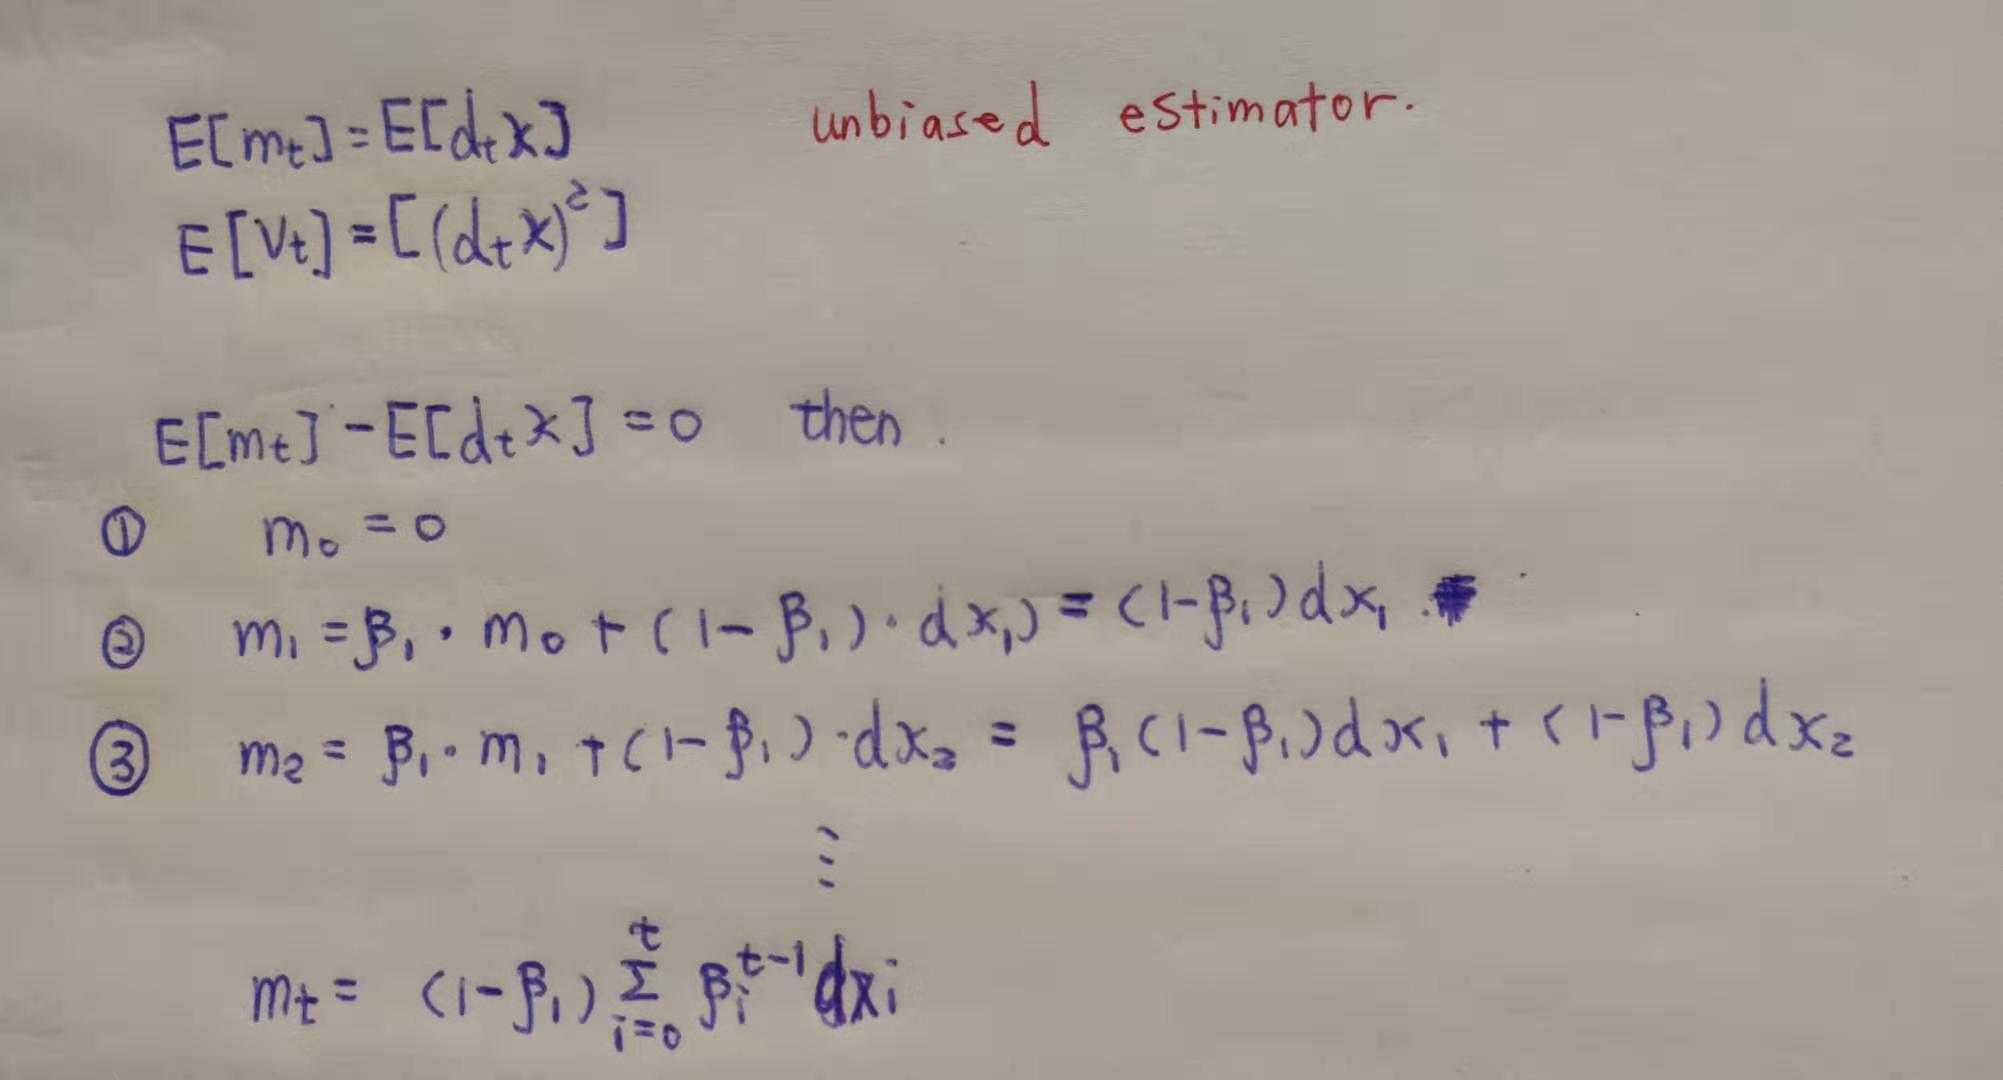 E[mₜ]=E[dₜx] unbiased estimator.
E[Vₜ]=[(dₜx)²]
E[mₜ]-E[dₜx]=0 then.
① m₀=0
② m₁=β₁·m₀+(1-β₁)·dx₁)=(1-β₁)dx₁
③ m₂=β₁·m₁+(1-β₁)·dx₂=β₁(1-β₁)dx₁+(1-β₁)dx₂
⋮
mₜ=(1-β₁)∑ᵢ₌₀ᵗβᵢᵗ⁻¹dxᵢ